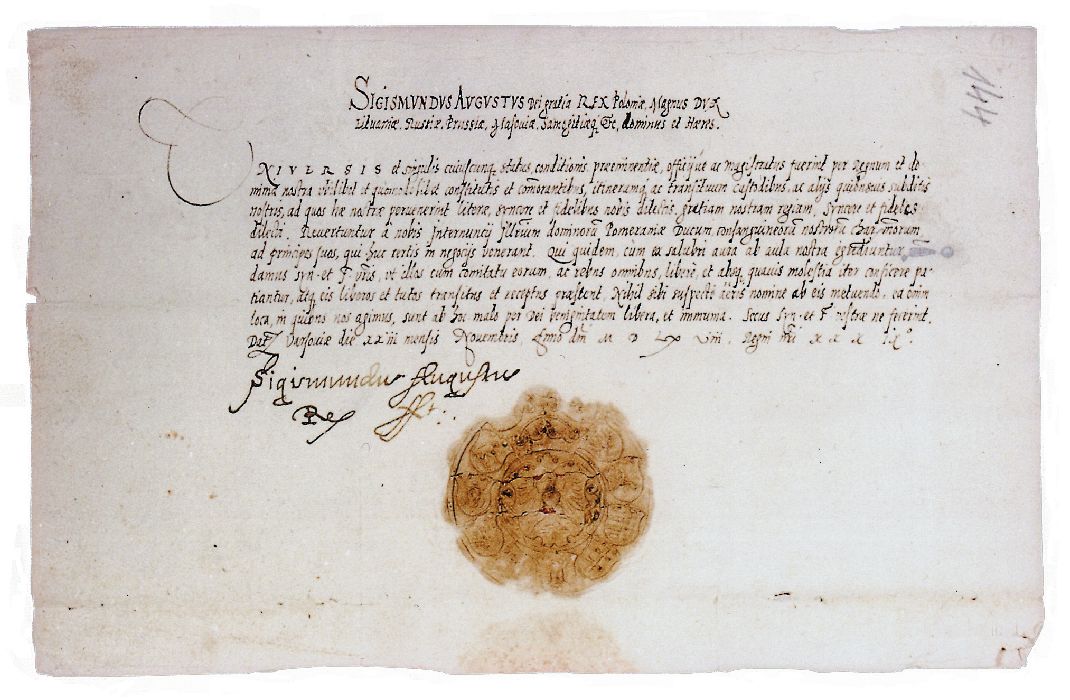 SIGISMVNDVS AVGVSTVS Dei gratia REX Poloniæ, Magnus DVX
Lituaniæ, Russiæ, Prussiæ, Masouiæ, Samogitiæq, &c, dominus et Hæres.
VNIVERSIS et singulis cuiuscunq, status, conditionis, præeminentiæ, officijue ac magistratus fuerint per Regnum et do
minia nostra vbilibet et constitutis et commorantibus, itinerumq ac transituum custodibus, ac alijs quibusuis subditis
nostris, ad quos hæ nostræ peruenerint literæ, syncere et fidelibus nobis dilectis, gratiam nostram regiam, Syncere et fideles
dilecti. Reuertuntur à nobis Internuncij Illrium dominorum Pomeraniæ Ducum, consanguineorum nostrorum charmorum,
ad principes suos, qui huc certis in negocijs venerant. Qui quidem, cùm ex salubri aura ab aula nostra egrediuntur,
damus syn. et f. vris, vt illos cum comitatu eorum, ac rebus omnibus, liberè, et absq, quauis molestia iter conficere pa
tiantur, atq, eis liberos et tutos transitus et receptus præstent, Nihil sibi suspecti aëris nomine ab eis metuendo, ea enim
loca, in quibus nos agimus, sunt ab hoc malo per Dei benignitatem libera, et immunia. Secus syn. et f. vestræ ne fecerint.
Dat Varsouiæ die XXIII mensis Nouembris, Anno dni M D LX VIII, Regni nri X X X IX°.
Sigismundus Augustus
Rex sst.
144